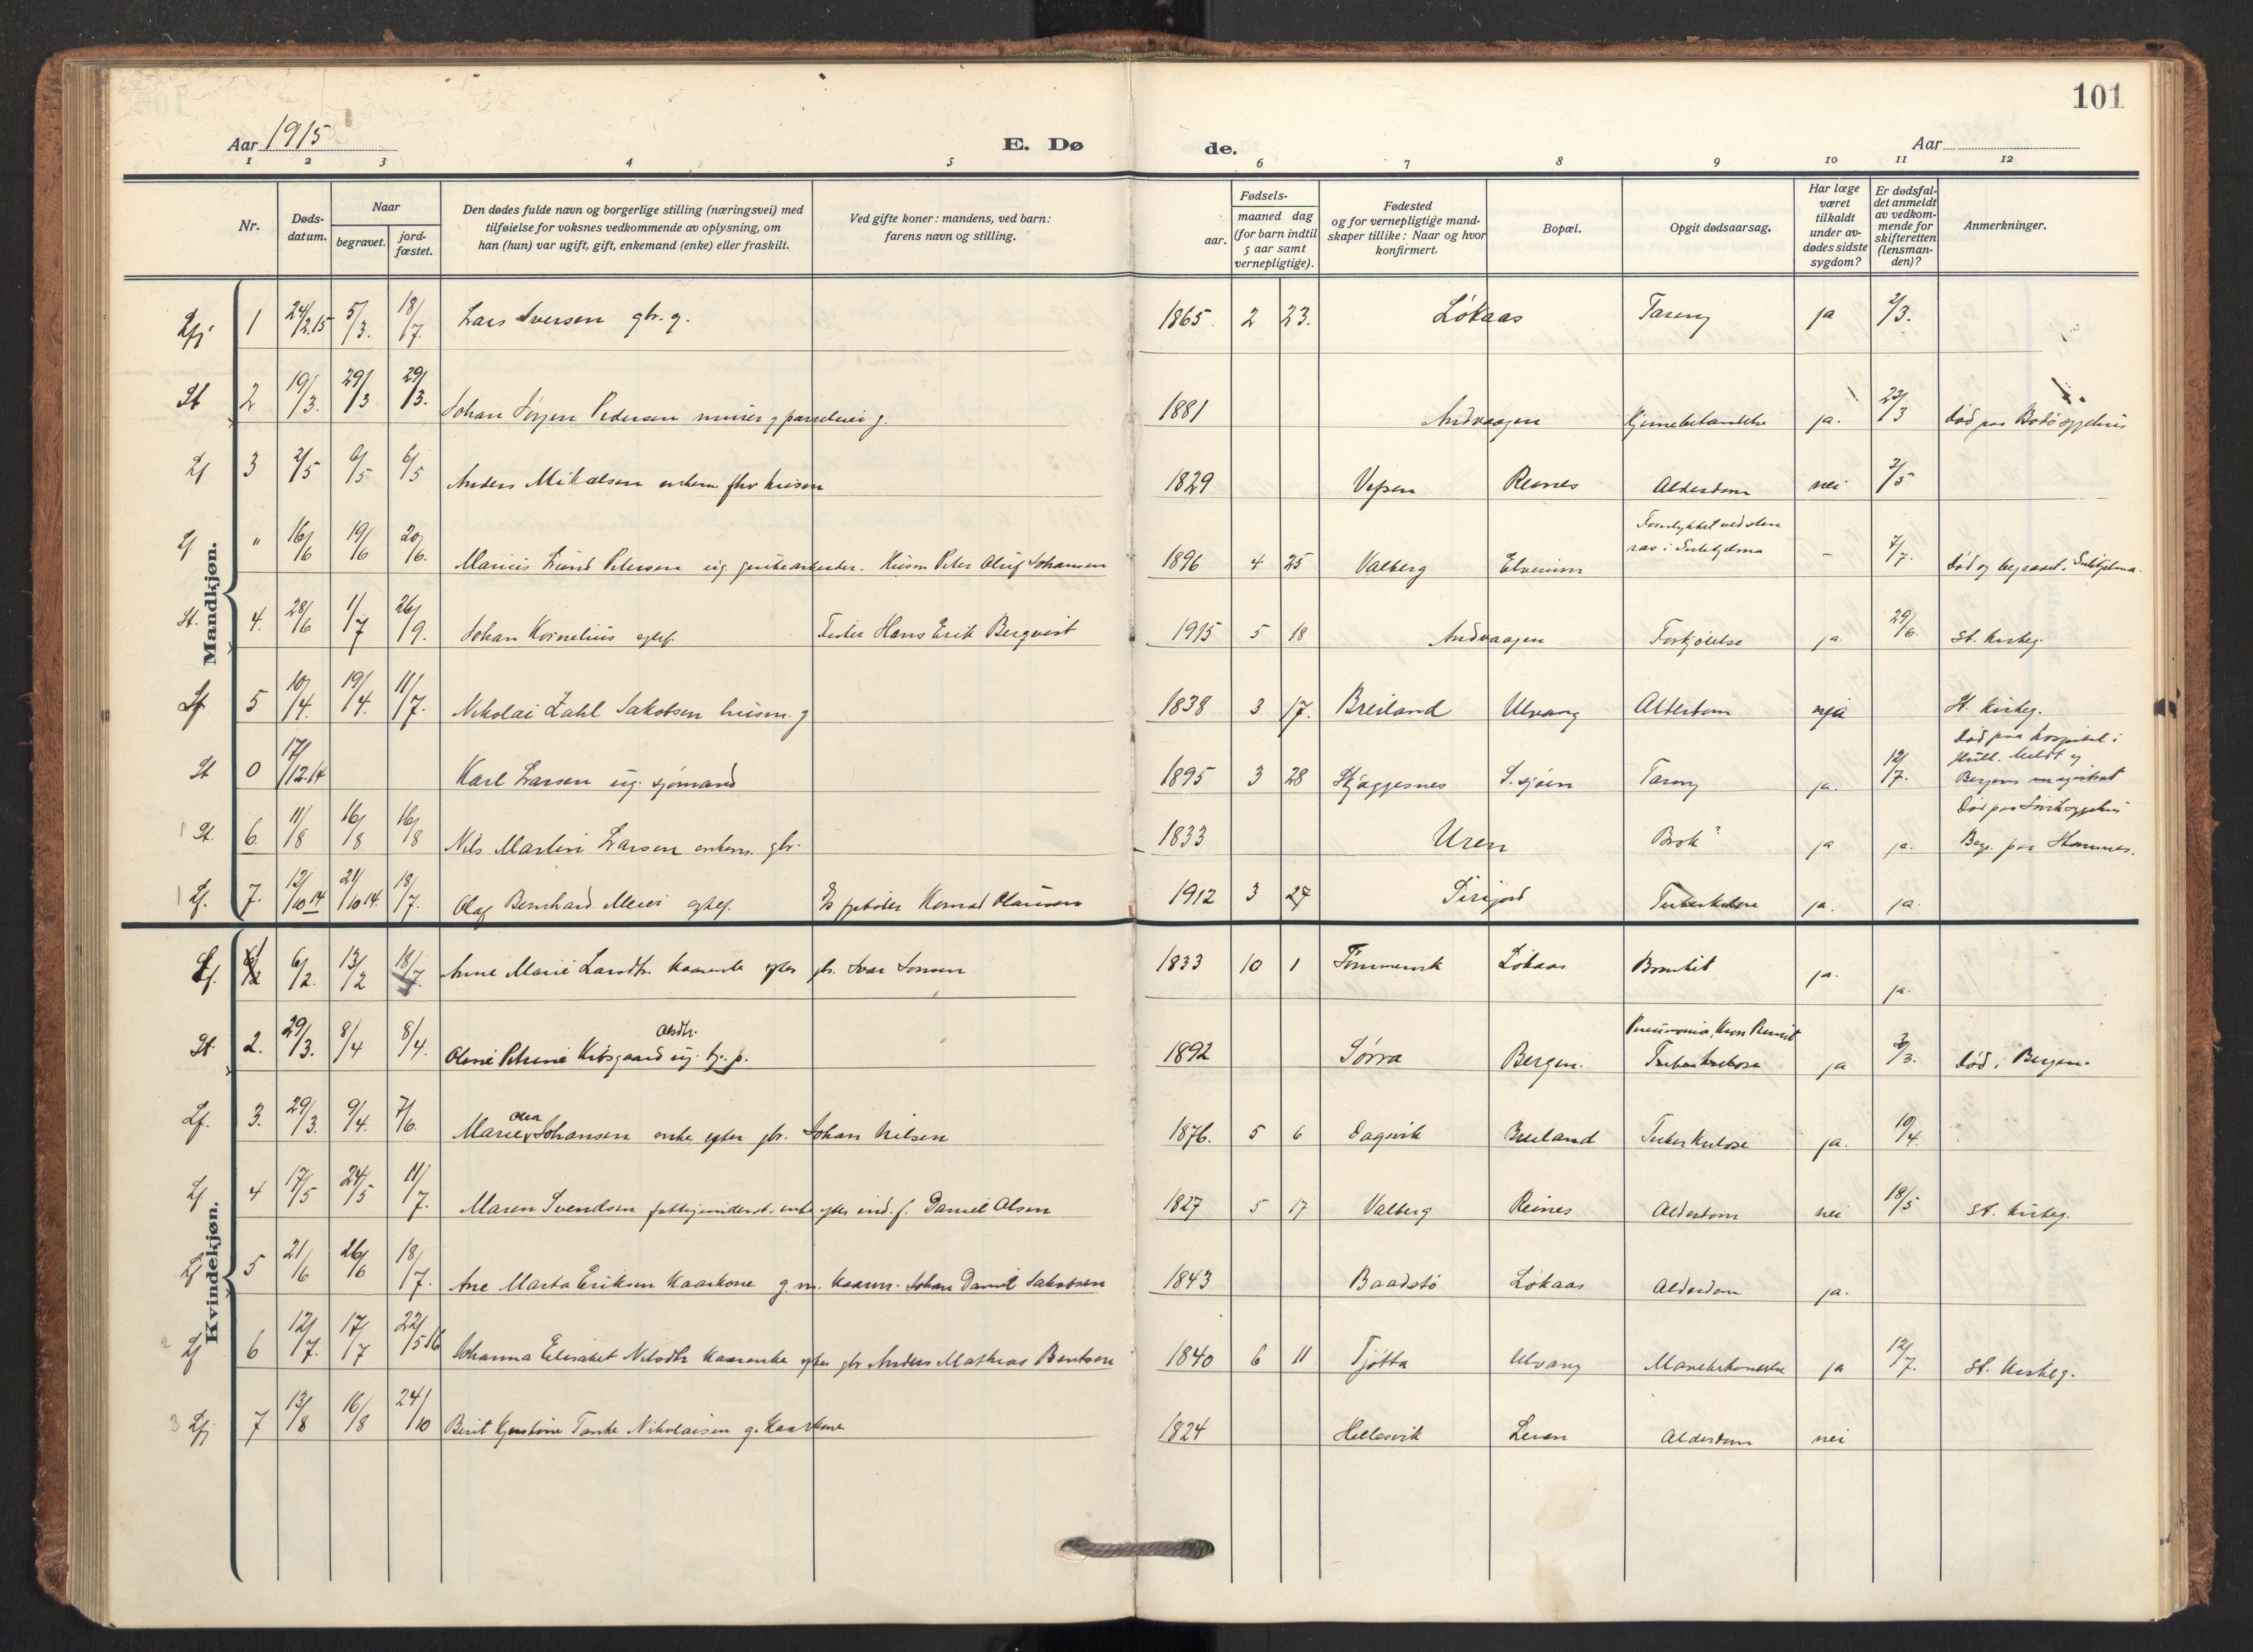 101
Aar 1915
E. Dø
de.
Aar
1 2 3 4 5 6 7 8 9 10 11 12
Nr.
Døds-
datum.
Naar
begravet.
jord-
fæstet.
Den dødes fulde navn og borgerlige stilling (næringsvei) med
tilføielse for voksnes vedkommende av oplysning, om
han (hun) var ugift, gift, enkemand (enke) eller fraskilt.
Ved gifte koner: mandens, ved barn:
farens navn og stilling.
Fødsels-
aar.
maaned dag
(for barn indtil
5 aar samt
vernepligtige).
Fødested
og for vernepligtige mand-
skaper tillike: Naar og hvor
konfirmert.
Bopæl.
Opgit dødsaarsag.
Har læge
været
tilkaldt
under av-
dødes sidste
sygdom?
Er dødsfal-
det anmeldt
av vedkom-
mende for
skifteretten
(lensman-
den)?
Anmerkninger.
Mandkjøn.
1 24/2 15 5/3. 18/7. Lars Iversen gbr. g. 1865. 2 23. Løkaas Tæring ja 2/3.
St 2 19/3. 29/3 29/3. Johan Jørgen Pedersen murer g 1881 Andvaagen ja. 23/3 Død paa Bodø sygehus
Lf 3 2/5 6/5 6/5 Anders Mikalsen enkem fhv husm 1829 Vefsen Reines Alderdom nei 3/5
Lf " 16/6 19/6 20/6. Marius Lund Petersen ug grubearbeider. Husm Peter Oluf Johansen 1896 4 25 Valberg
Forulykket ved sten
ras i Sulitjelma – 7/7. Død og begravet i Sulitjelma.
St. 4. 28/6 1/7 26/9. Johan Kornelius Fisker Hans Erik Bergvist 1915 5 18 Andvaagen Forkjølelse ja. 29/6. St. kirkeg.
Lf 5 10/4. 19/4. 11/7. Nikolai Zahl Jakobsen husm. g 1838 3 17. Breiland Ulvang Alderdom St. kirkeg.
St 0 17/12.14 Karl Larsen ug. sjømand 1895 3 28 Skjæggesnes S.sjøen Tæring ja. 12/7.
Død paa hospital i
Hull. Meldt af
Bergens magistrat
St. 6. 11/8 16/8 16/8 Nils Martin Larsen enkem. gbr. 1833 Uren Brok? ja ja.
Lf. 7. 12/10 14 21/10 14. 18/7. Olaf Bernhard Meier Konrad Clausen 1912 3 27 Tuberkulose ja. ja.
Kvindekjøn.
Lf. 1 6/2. 13/2 18/7. Anne Marie Larsdtr. kaarenke efter gbr. Ivar Jonsen 1833 10 1 Tømmervik Løkaas Bronkit ja. ja.
St. 2. 29/3. 8/4 8/4. Oline Petrine Kibsgaard Olsdtr. ug. tj. p. 1892 Sørra Bergen. Pneumonia, Tuberkulose ja 3/3. Død i Bergen.
Lf. 3. 29/3. 9/4. 7/6. Marie Olea Johansen enke efter gbr. Johan Nilsen 1876. 5 6 Dagsvik Breiland Tuberkulose ja. 19/4.
Lf 4 17/5 24/5 11/7. Maren Svendsen fattigunderst. enke efter ind. f. Daniel Olsen 1827 5 17 Valberg Reines Alderdom nei 18/5 St. kirkeg.
Lf 5 21/6 26/6 18/7. Ane Marta Eriksen kaarkone g. m. kaarm. Johan Daniel Jakobsen 1843 Baadstø Løkaas Alderdom ja.
2 Lf 6 12/7. 17/7 22/5 16 Johanna Elisabet Nilsdtr kaarenke efter gbr Anders Mathias Bentsen 1840 6 11 Tjøtta Ulvang Mavebetændelse ja 12/7. St. kirkeg.
3 7 13/8 16/8 24/10 Berit Kjerstine Tanke Nikolaisen g. kaarkone 1824 Hellesvik Leran Alderdom nei